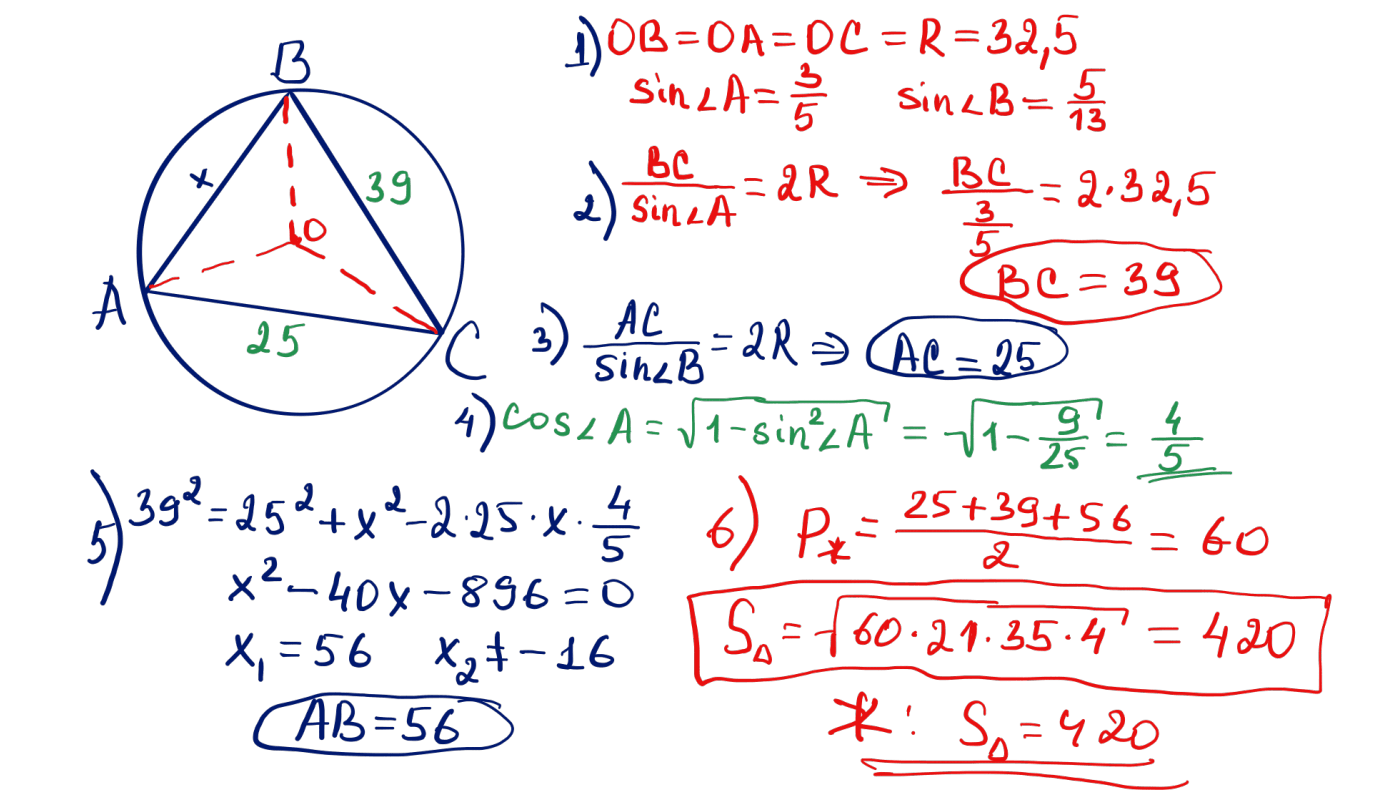 B
x
39
O
A
25
C
1) OB = OA = OC = R = 32,5
sin∠A = 3/5 sin∠B = 5/13
2) BC/sin∠A = 2R ⇒ BC/(3/5) = 2·32,5
BC = 39
3) AC/sin∠B = 2R ⇒ AC = 25
4) cos∠A = √(1-sin²∠A) = √(1-9/25) = 4/5
5) 39² = 25² + x² - 2·25·x·4/5
x² - 40x - 896 = 0
x₁ = 56 x₂ ≠ -16
AB = 56
6) P* = (25+39+56)/2 = 60
S△ = √(60·21·35·4) = 420
*: S△ = 420